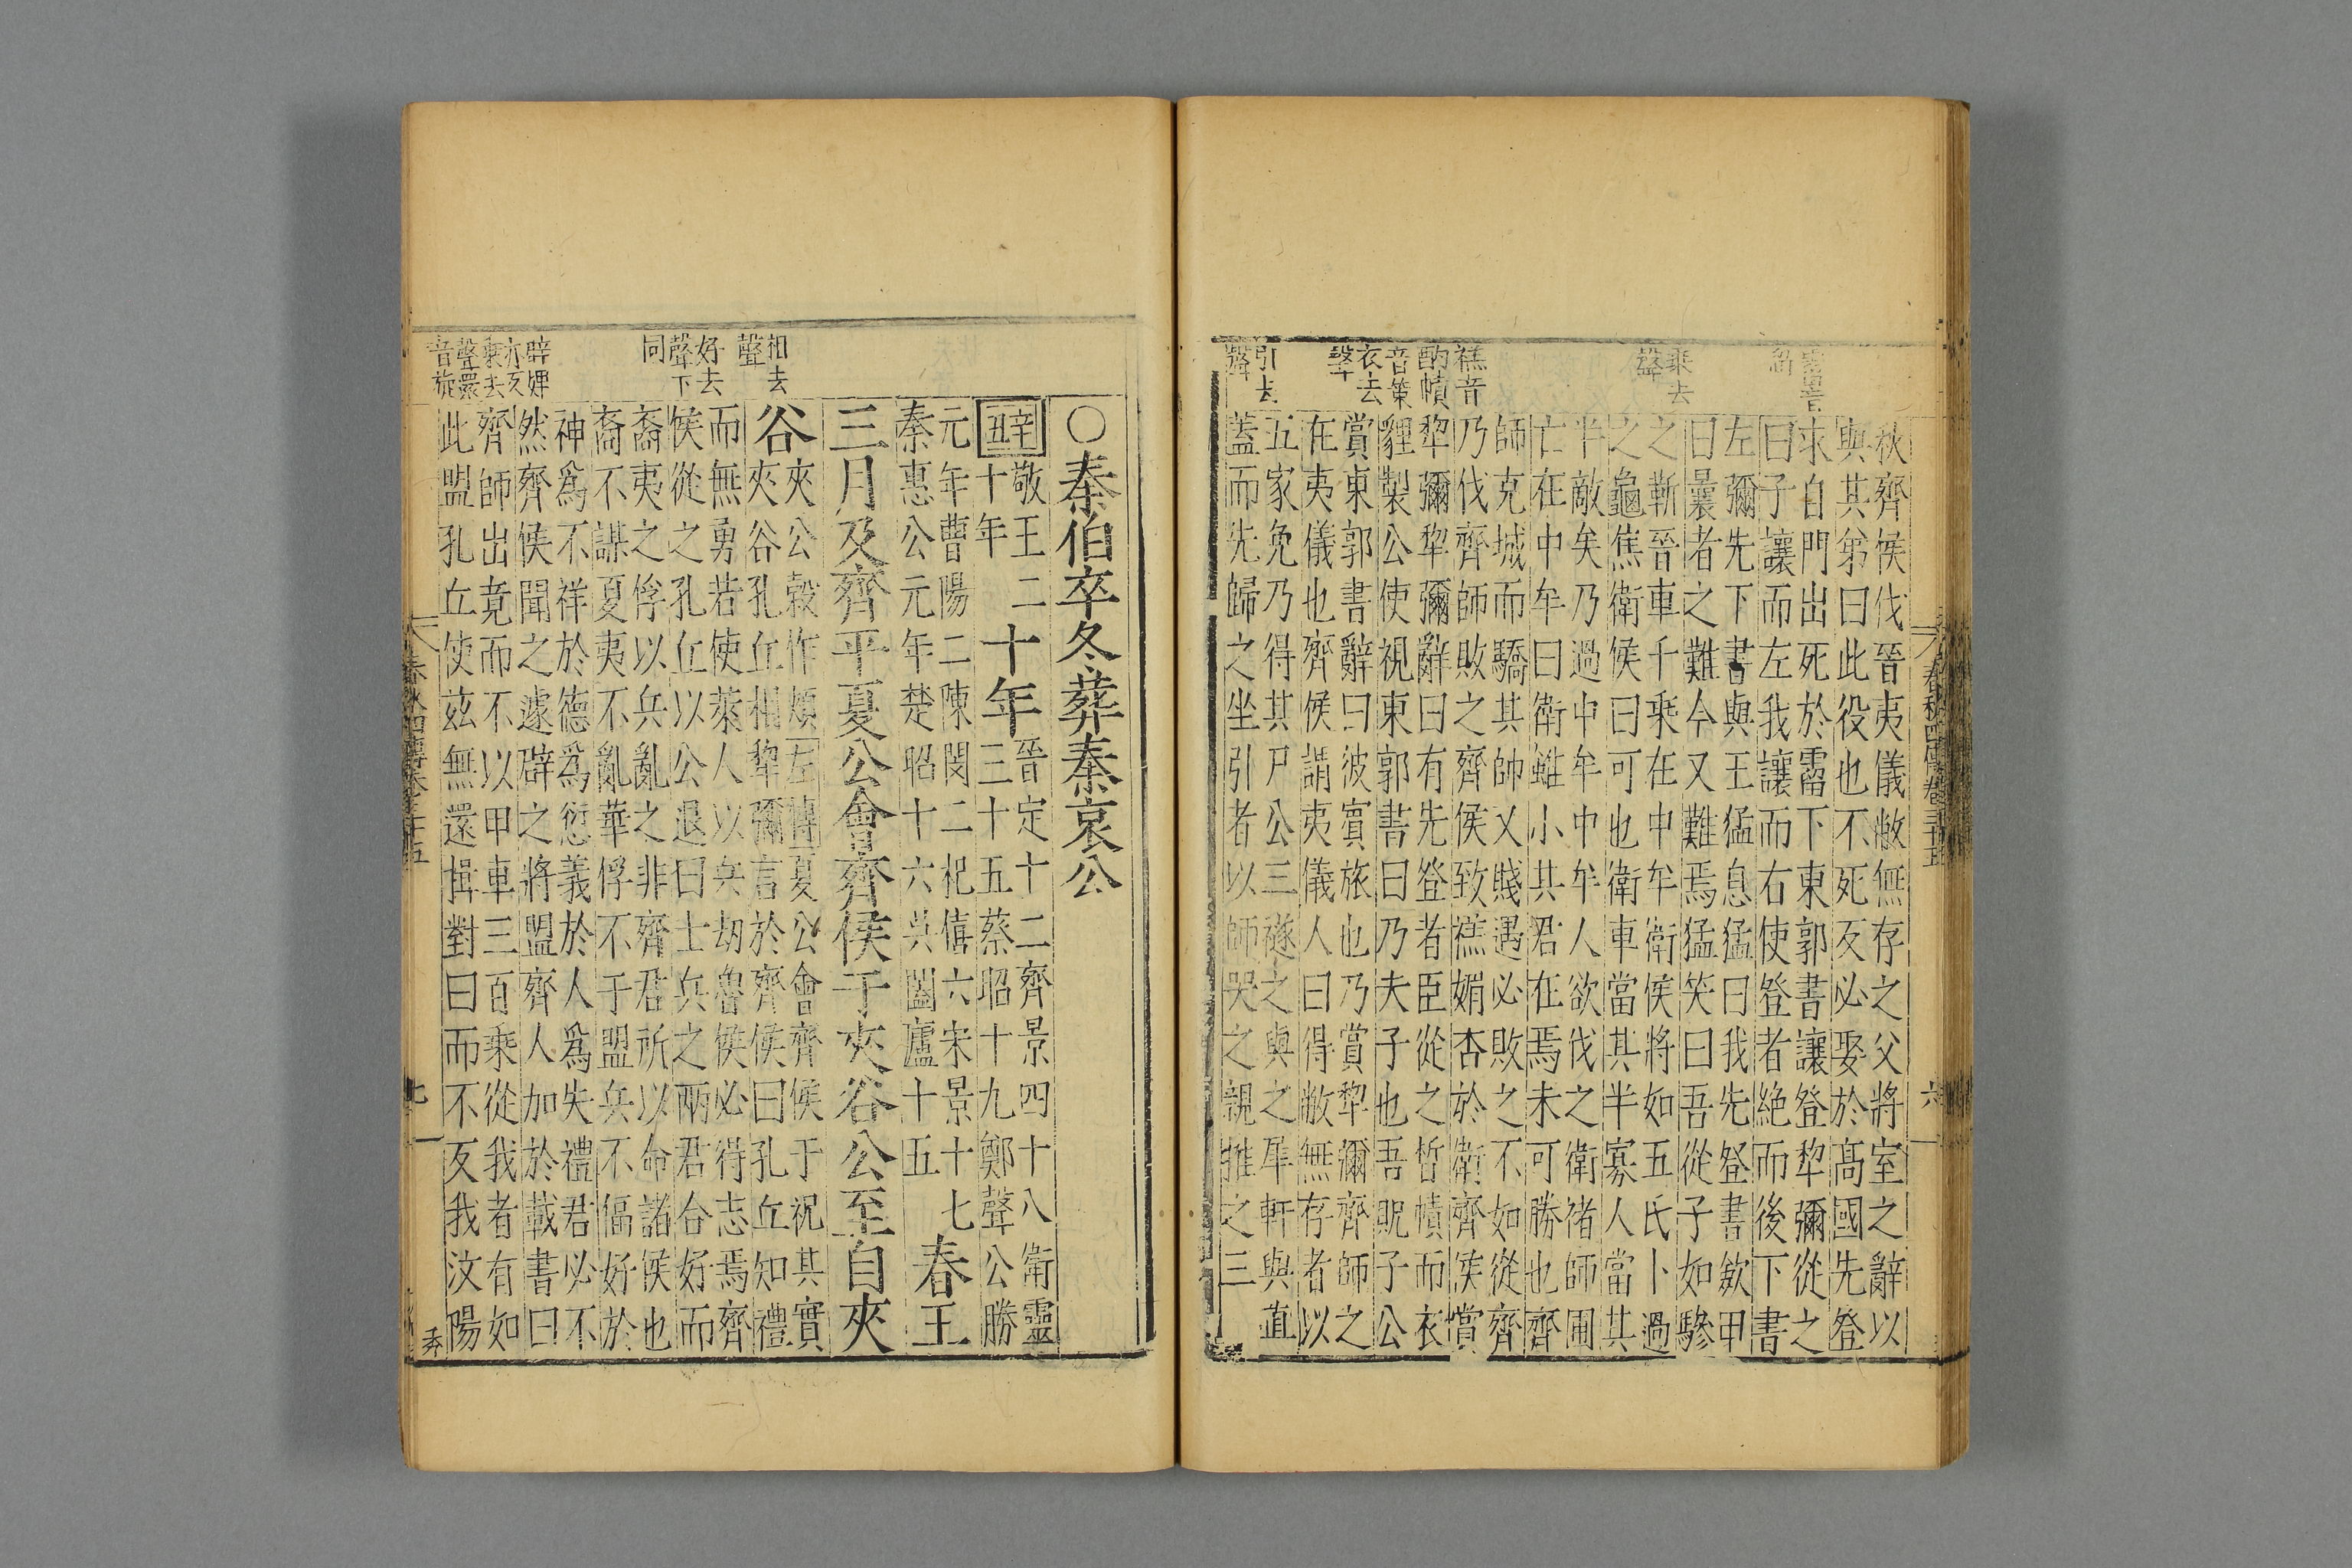 春秋四傳卷三十五
六
霤音
溜
乘去
聲
禚音
酌幘
音策
衣去
聲
引去
聲
秋齊侯伐晉夷儀敝無存之父將室之辭以
與其弟曰此役也不死反必娶於髙國先登
求自門出死於霤下東郭書讓登犂彌從之
曰子讓而左我讓而右使登者絶而後下書
左彌先下書與王猛息猛曰我先登書歛甲
曰曩者之難今又難焉猛笑曰吾從子如驂
之靳晉車千乘在中牟衛侯將如五氏卜過
之龜焦衛侯曰可也衛車當其半寡人當其
半敵矣乃過中牟中牟人欲伐之衛褚師圃
亡在中牟曰衛雖小其君在焉未可勝也齊
師克城而驕其帥又賤遇必敗之不如從齊
乃伐齊師敗之齊侯致禚媚杏於衛齊侯賞
犂彌犂彌辭曰有先登者臣從之晳幘而衣
貍製公使視東郭書曰乃夫子也吾貺子公
賞東郭書辭曰彼賓旅也乃賞犂彌齊師之
在夷儀也齊侯謂夷儀人曰得敝無存者以
五家免乃得其尸公三襚之與之犀軒與直
蓋而先歸之坐引者以師哭之親推之三
相去
聲
好去
聲下
同
辟婢
亦反
乘去
聲還
音旋
○秦伯卒冬葬秦哀公
辛丑
敬王二
十年
十年
晉定十二齊景四十八衛靈
三十五蔡昭十九鄭聲公勝
元年曹陽二陳閔二杞僖六宋景十七
秦惠公元年楚昭十六吳闔廬十五
春王
三月及齊平夏公會齊侯于夾谷公至自夾
谷
夾公榖作頰左傳夏公會齊侯于祝其實
夾谷孔丘相犂彌言於齊侯曰孔丘知禮
而無勇若使萊人以兵劫魯侯必得志焉齊
侯從之孔丘以公退曰士兵之兩君合好而
裔夷之俘以兵亂之非齊君所以命諸侯也
裔不謀夏夷不亂華俘不干盟兵不偪好於
神爲不祥於德爲愆義於人爲失禮君必不
然齊侯聞之遽辟之將盟齊人加於載書曰
齊師出竟而不以甲車三百乘從我者有如
此盟孔丘使兹無還揖對曰而不反我汶陽
春秋四傳卷三十五
七